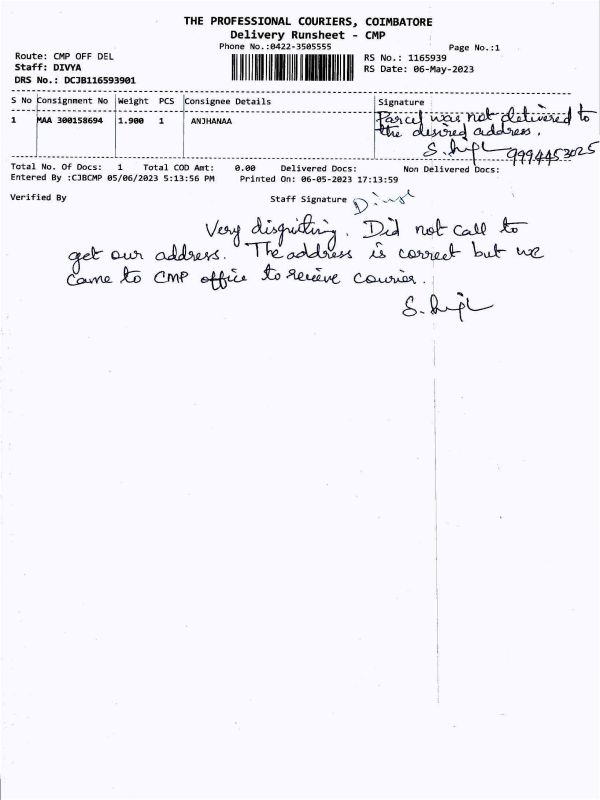 THE PROFESSIONAL COURIERS, COIMBATORE
Delivery Runsheet - CMP
Phone No.:0422-3505555 Page No.:1
Route: CMP OFF DEL RS No.: 1165939
Staff: DIVYA RS Date: 06-May-2023
DRS No.: DCJB116593901
S No Consignment No Weight PCS Consignee Details Signature
1 MAA 300158694 1.900 1 ANJHANAA Parcel was not delivered to
the desired address.
S. 9994453025
Total No. Of Docs: 1 Total COD Amt: 0.00 Delivered Docs: Non Delivered Docs:
Entered By :CJBCMP 05/06/2023 5:13:56 PM Printed On: 06-05-2023 17:13:59
Verified By Staff Signature
Very disgusting. Did not call to
get our address. The address is correct but we
came to CMP office to receive courier.
S.